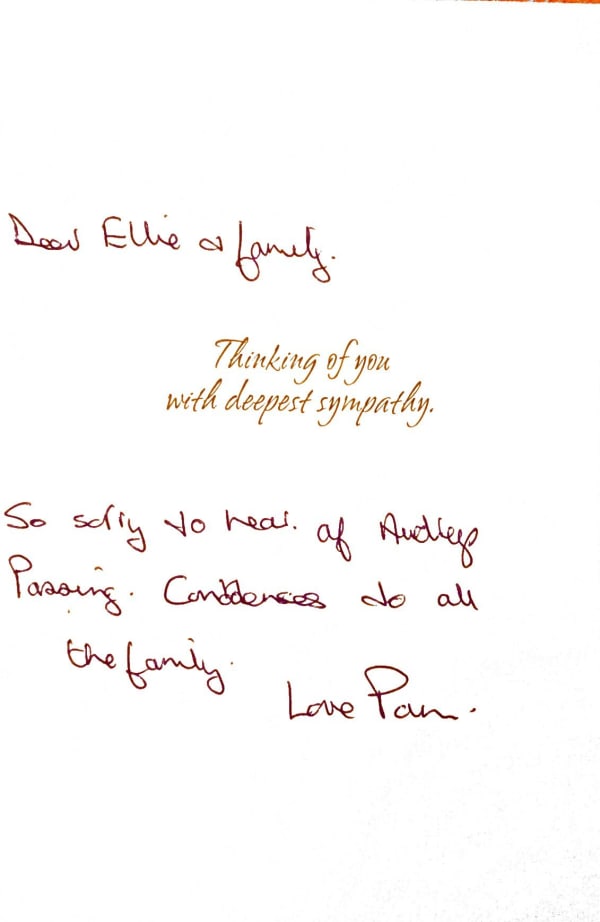 Dear Ellie & family.
Thinking of you
with deepest sympathy.
So sorry to hear. of Audleys
Passing. Condolences to all
the family.
Love Pam.